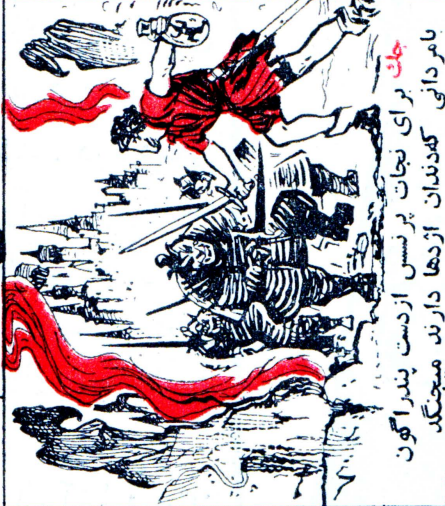 جك برای نجات پرنسس ازدست پندراگون
بامردانی كه‌دندان اژدها دارند میجنگد